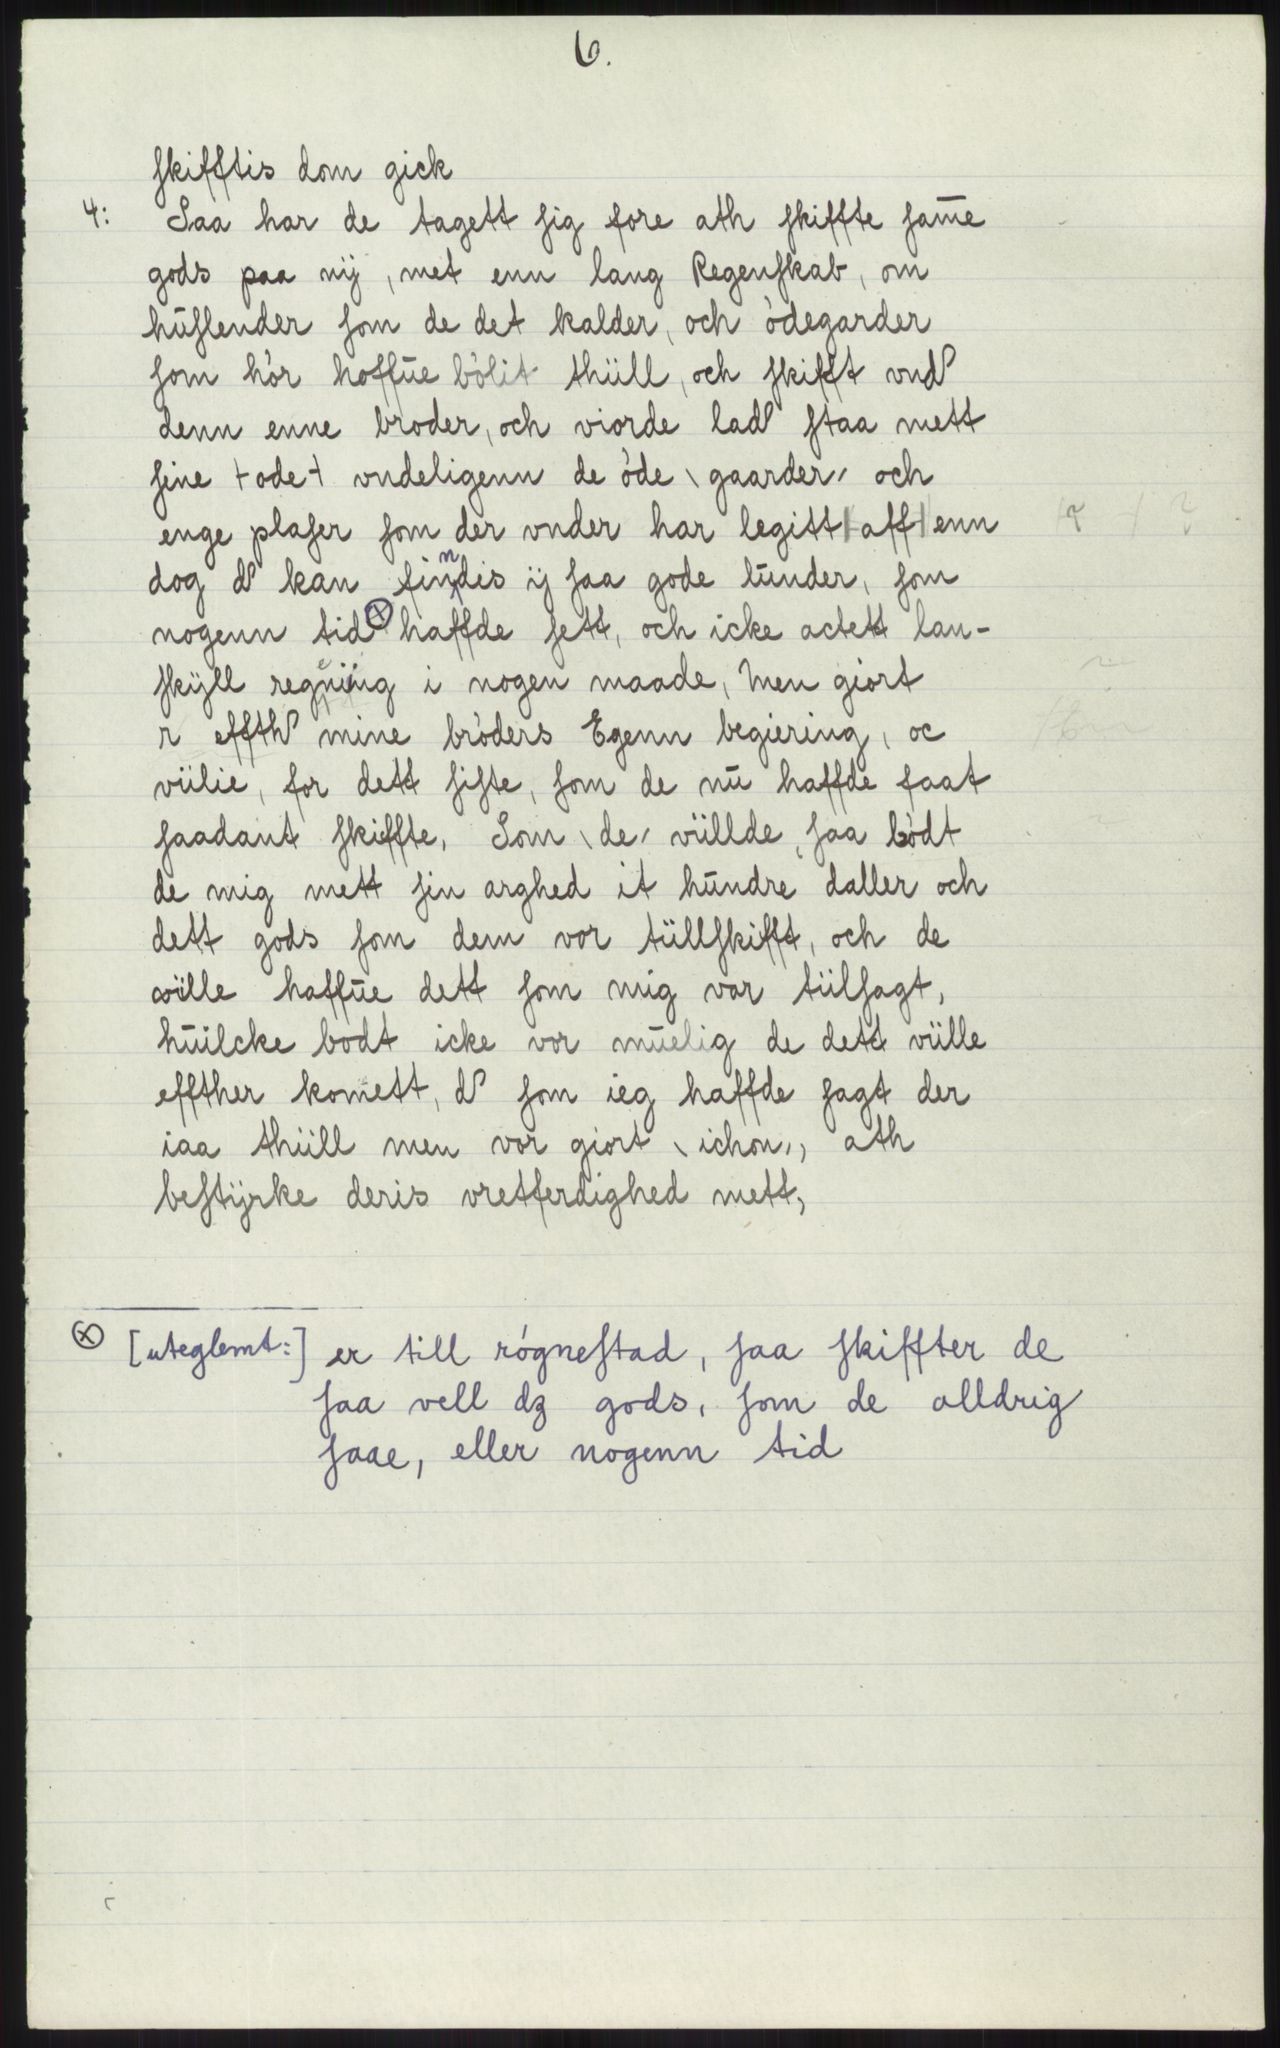 6.
skifftis dom gick
4: Saa har de tagett sig fore ath skiffte sam̄e
gods paa nÿ, met enn lang Regenskab, om
hŭslender som de det kalder, och òdegarder
som hòr hoffŭe bòlit thüll, och skifft vnd
denn enne broder, och viorde lad staa mett
sine + ode + vndeligenn de òde \ gaarder / och
enge plaser som der vnder har legitt | aff | enn
dog d kan findis ij saa gode lŭnder, som
nogenn tid ⊗ haffde sett, och icke actett lan-
skÿll regning i nogen maade, Men giort
r effth mine bròders Egenn begiering, oc
viilie, for dett siste, som de nŭ haffde faat
saadant skiffte, Som \ de / vüllde, saa bòdt
de mig mett sin arghed it hŭndre daller och
dett gods som dem vor tüllskifft, och de
wille haffŭe dett som mig var tülsagt,
hŭilcke bodt icke vor mŭelig de dett vülle
effther komett, d som ieg haffde sagt der
iaa thüll men vor giort \ ichon /, ath
bestÿrke deris vretferdighed mett,
⊗ [uteglemt:] er till rógnestad, saa skiffter de
saa vell dʒ gods, som de alldrig
saae, eller nogenn tid